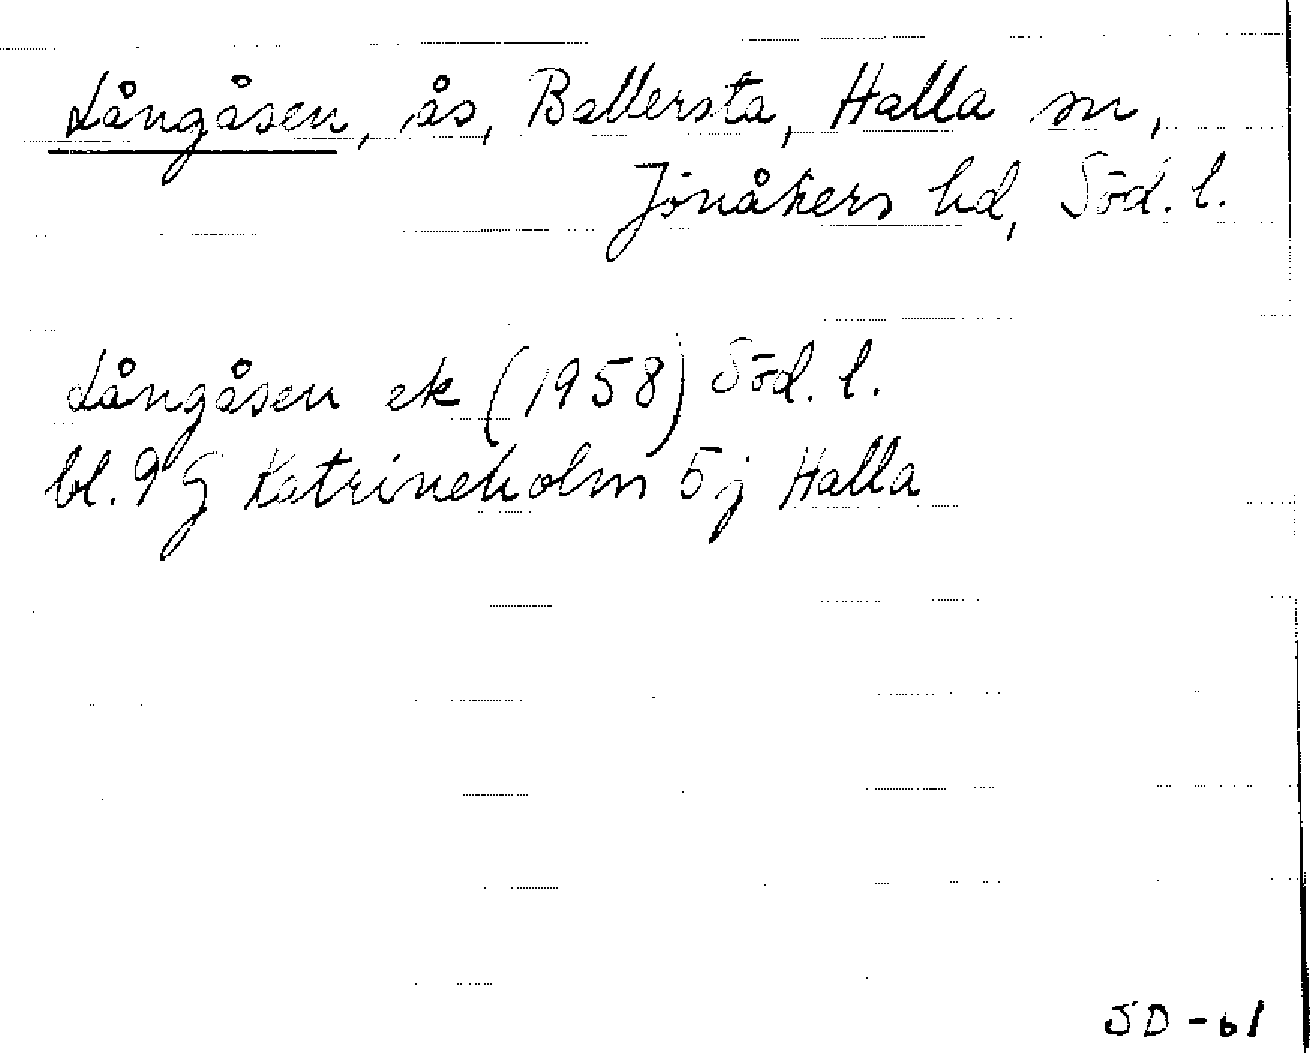 Långåsen, ås, Ballersta, Halla sn,
Jönåkers hd, Söd. l.
Långåsen ek (1958) Söd. l.
bl. 9 G Katrineholm 5 j Halla
SD-61